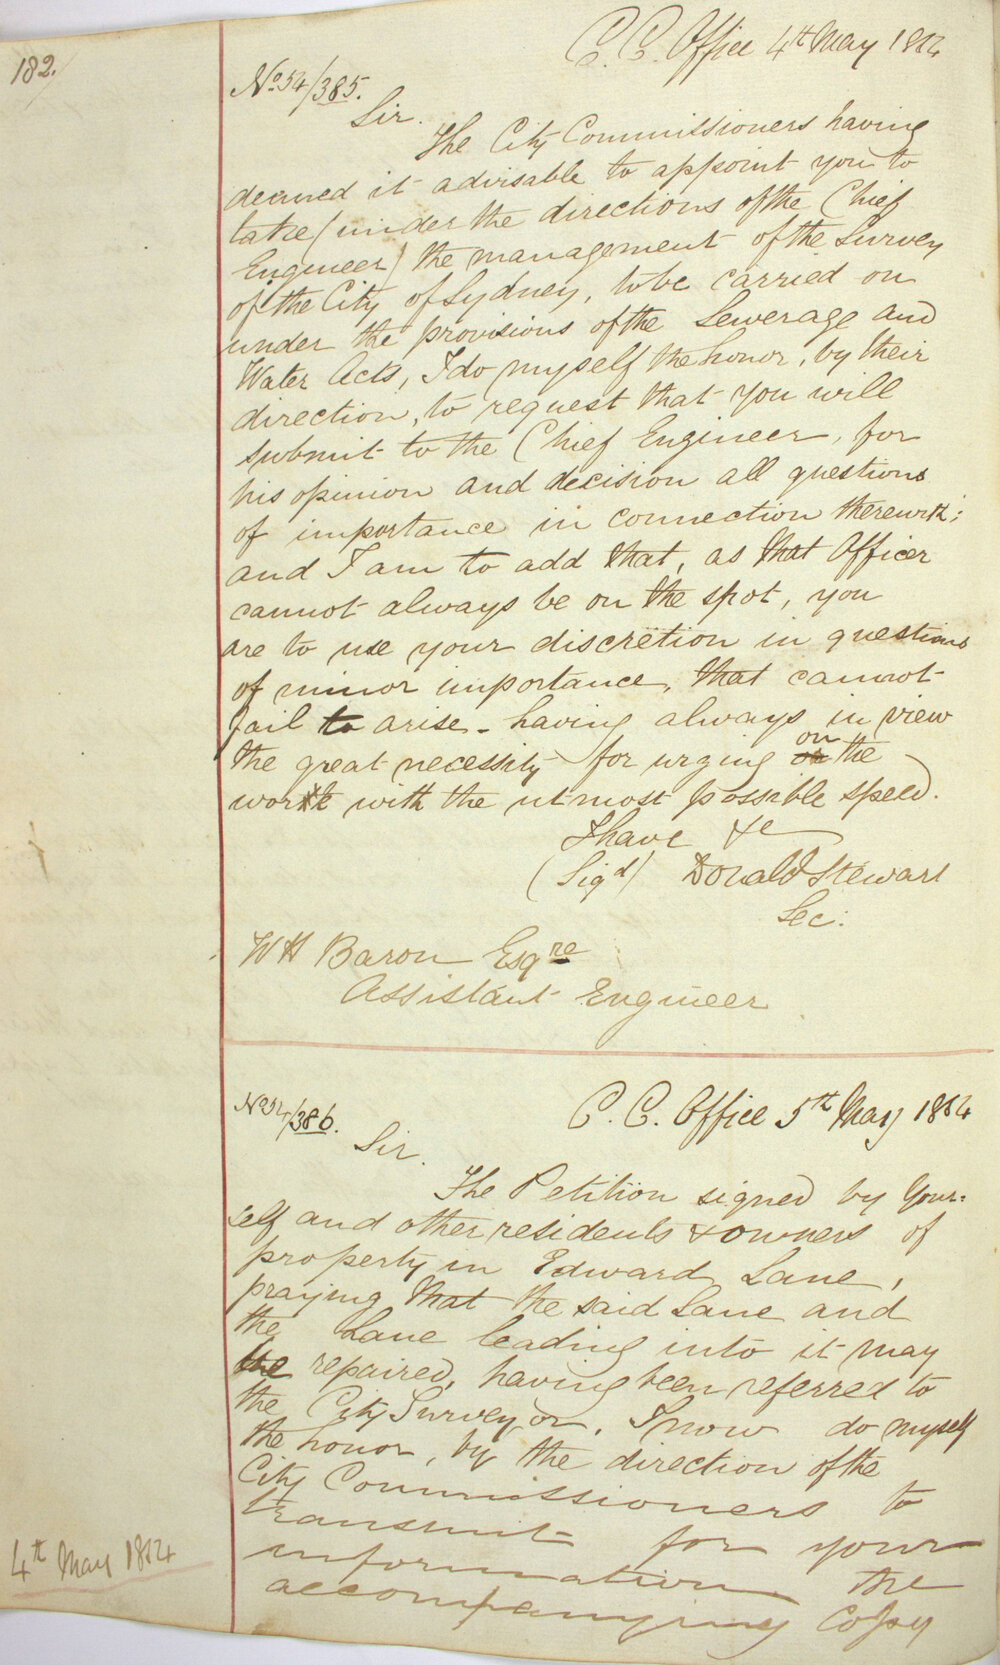 182.
C. C. Office 4th May 1854
No 54/385.
Sir.
The City Commissioners having
deemed it advisable to appoint you to
take (under the directions of the Chief
Engineer) the management of the Survey
of the City of Sydney, to be carried on
under the provisions of the Sewerage and
Water Acts, I do myself the honor, by their
direction, to request that you will
submit to the Chief Engineer, for
his opinion and decision all questions
of importance in connection therewith;
and I am to add that, as that Officer
cannot always be on the spot, you
are to use your discretion in questions
of minor importance, that cannot
fail to arise - having always in view
the great necessity for urging on the
work with the utmost possible speed.
I have &c
(Sigd) Donald Stewart
Sec:
W H Baron Esqre
Assistant Engineer
No 54/386.
C. C. Office 5th May 1854
Sir.
The Petition signed by Your=
self and other residents & owners of
property in Edward Lane,
praying that the said Lane and
the Lane leading into it may
be repaired, having been referred to
the City Surveyor, I now do myself
the honor, by the direction of the
City Commissioners to
transmit for your
information the
accompanying Copy
4th May 1854